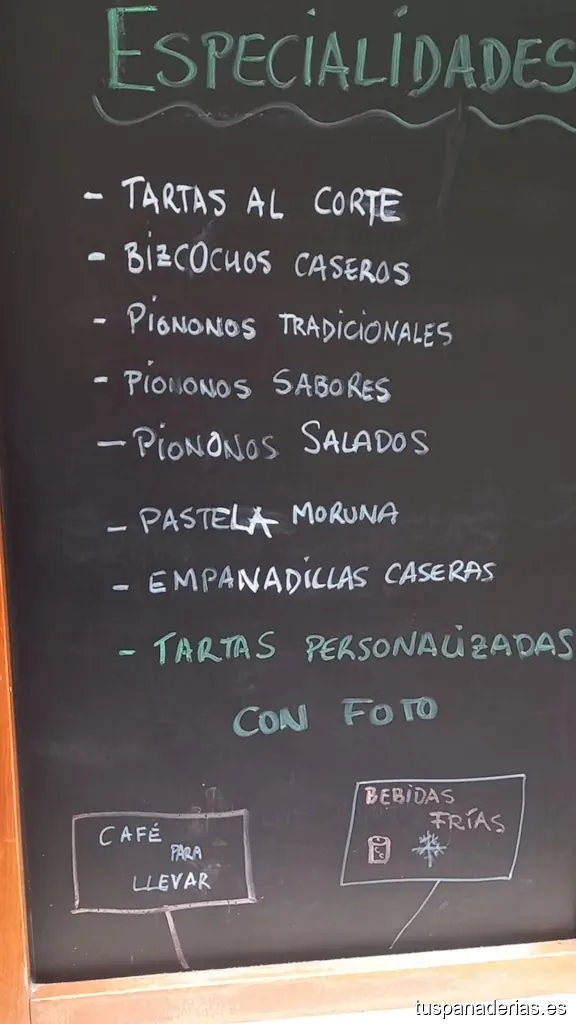 ESPECIALIDADES
- TARTAS AL CORTE
- BIZCOCHOS CASEROS
- PIONONOS TRADICIONALES
- PIONONOS SABORES
- PIONONOS SALADOS
- PASTELA MORUNA
- EMPANADILLAS CASERAS
- TARTAS PERSONALIZADAS
CON FOTO
CAFÉ
PARA
LLEVAR
BEBIDAS
FRÍAS
tuspanaderias.es